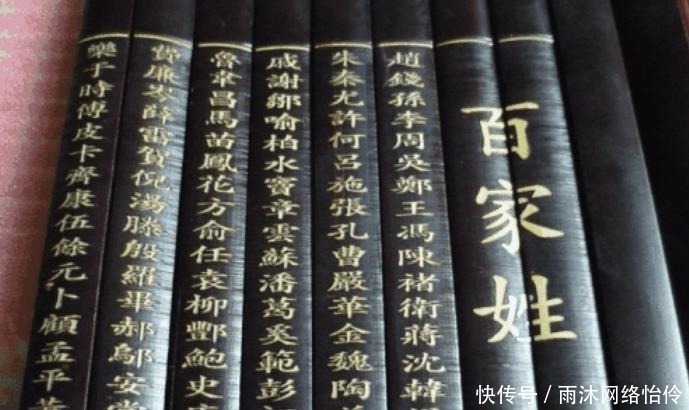 百家姓
趙錢孫李周吳鄭王馮陳褚衛蔣沈韓
朱秦尤許何呂施張孔曹嚴華金魏陶
戚謝鄒喻柏水竇章雲蘇潘葛奚範彭
魯韋昌馬苗鳳花方俞任袁柳酆鮑史
費廉岑薛雷賀倪湯滕殷羅畢郝鄔安常
樂于時傅皮卡齊康伍餘元卜顧孟平黃
快传号／雨沐网络怡伶